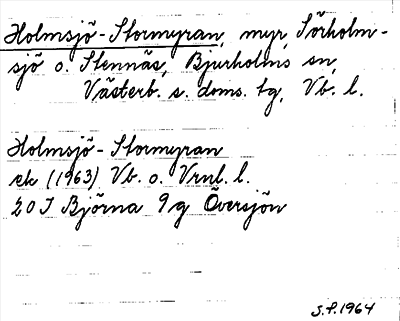 Holmsjö-Stormyran, myr, Sörholm-
sjö o. Stennäs, Bjurholms sn,
Västerb. s. doms. tg, Vb. l.
Holmsjö-Stormyran
ek (1963) Vb. o. Vrnl. l.
20 J Björna 9g Översjön
S.P. 1964